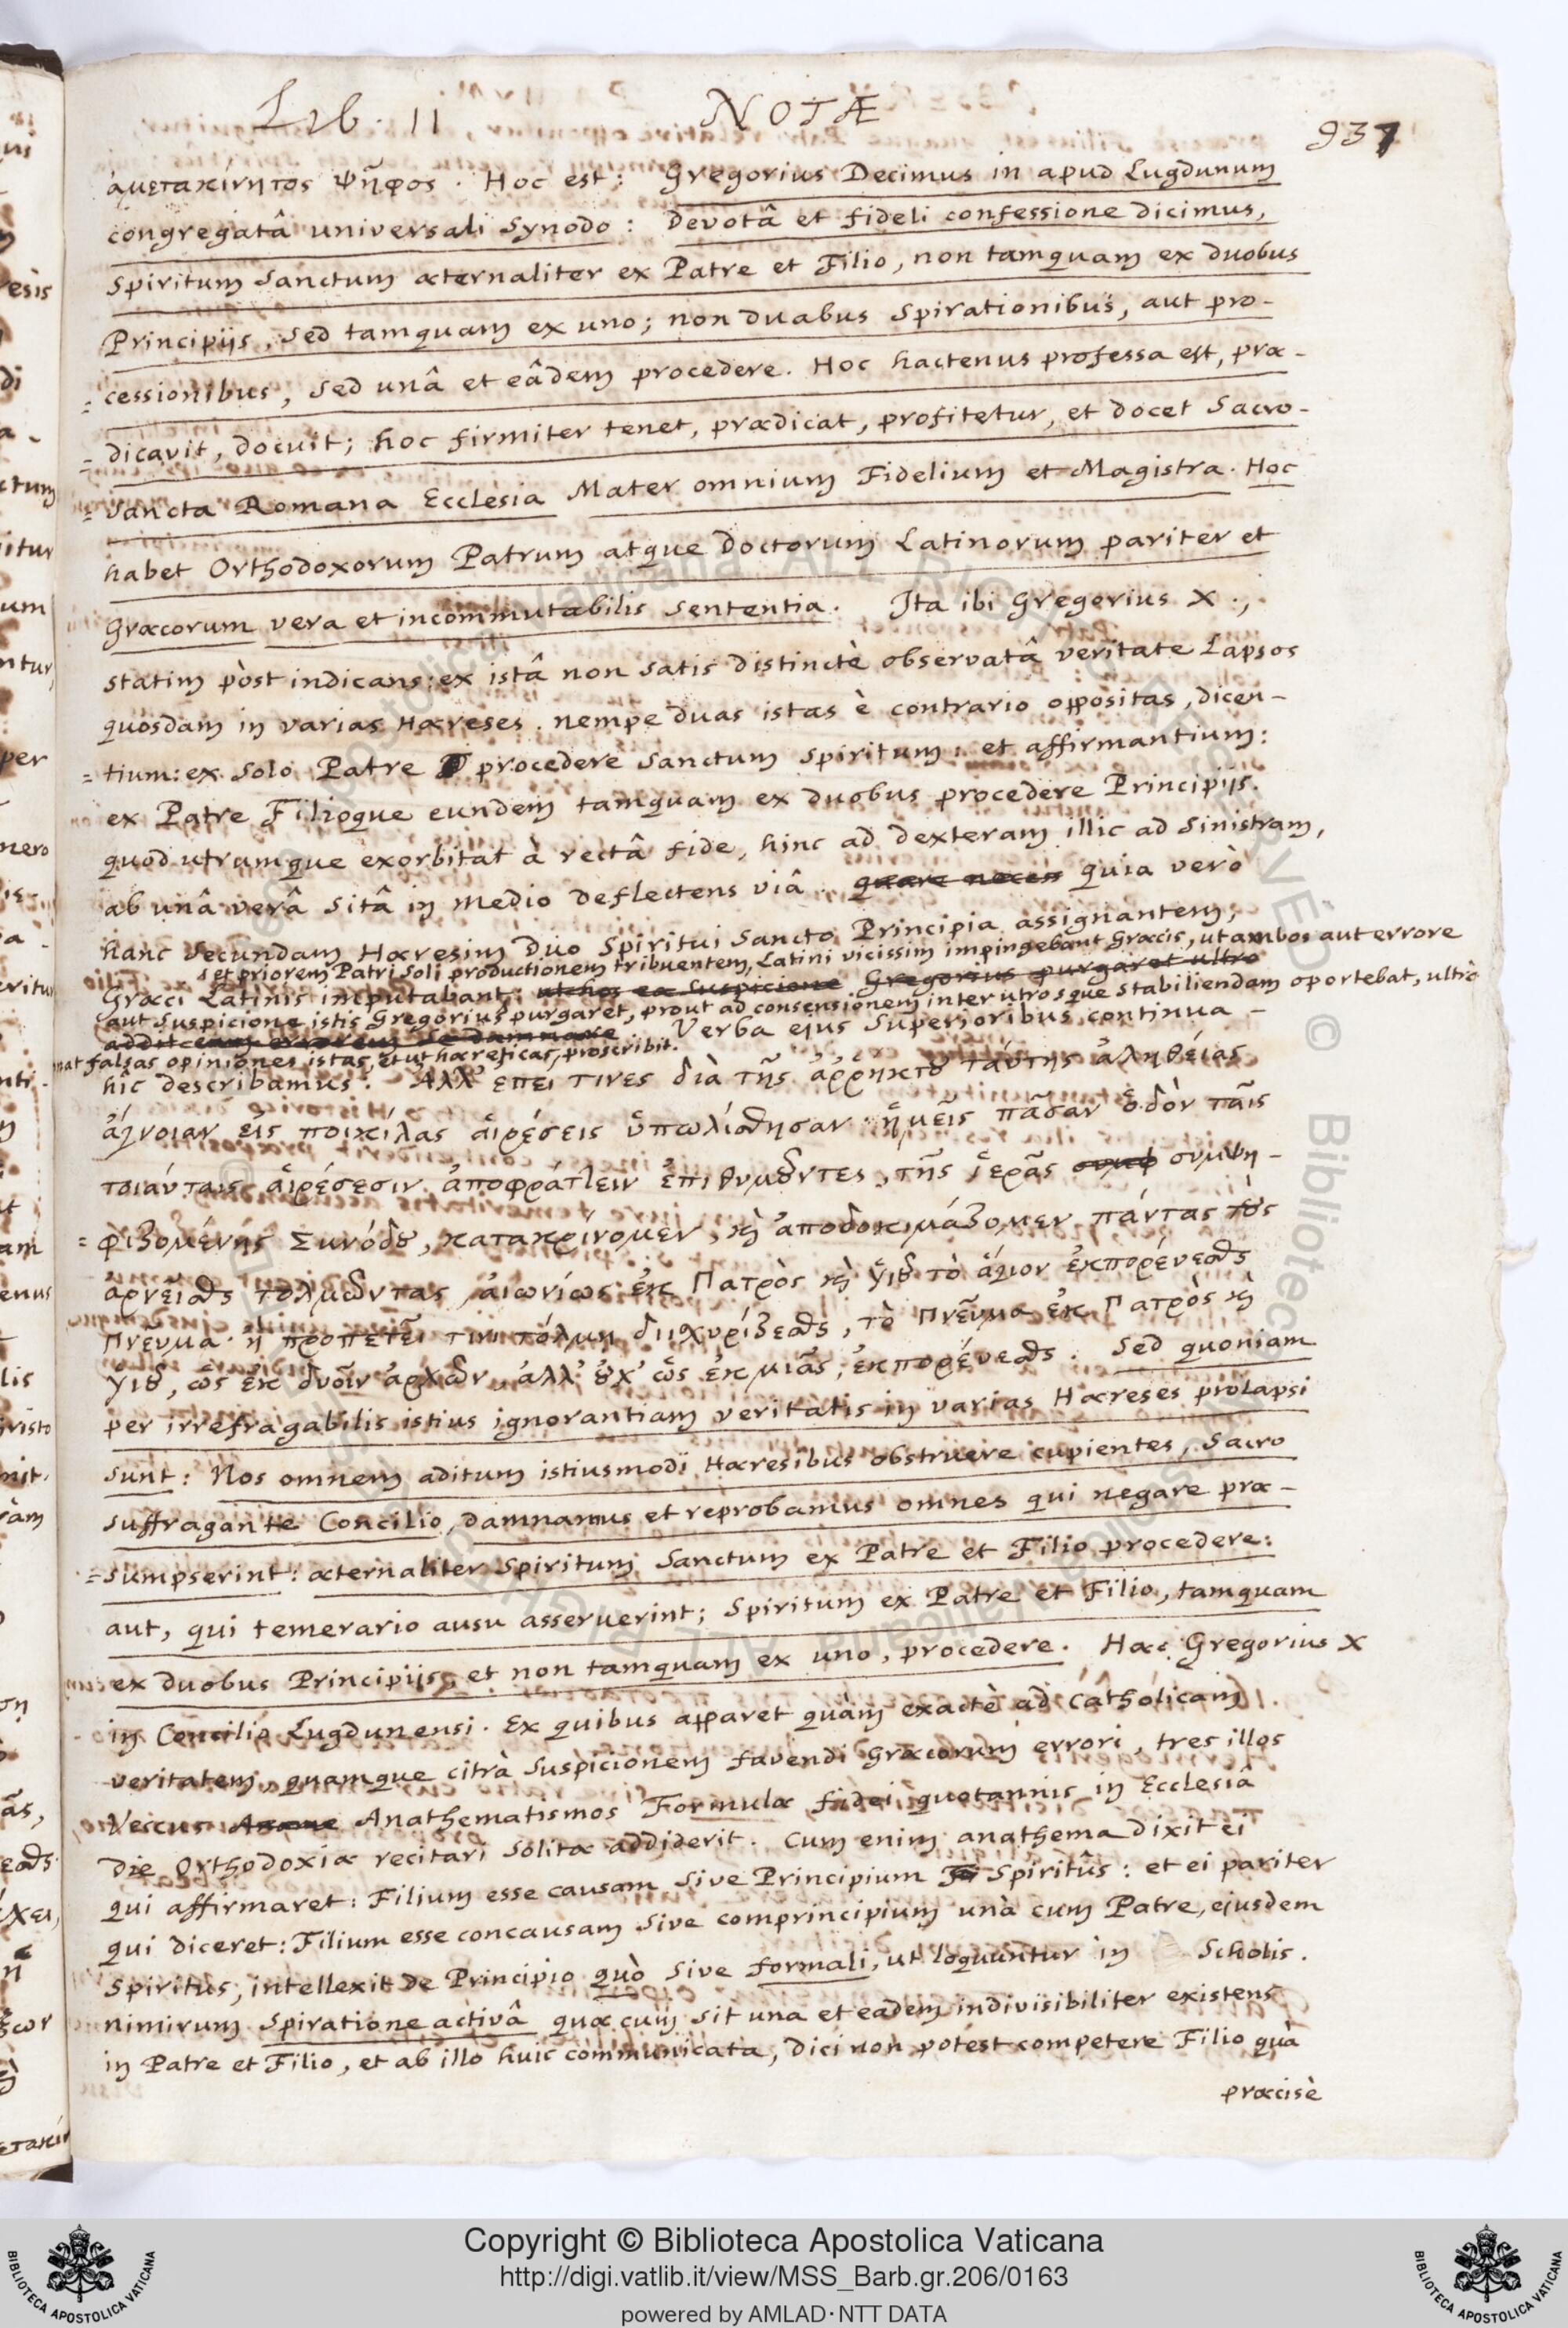 Lib. II NOTÆ 937
ἀμετακίνητος ψῆφος. Hoc est: Gregorius Decimus in apud Lugdunum
congregatâ universali Synodo: Devotâ et fideli confessione dicimus,
Spiritum Sanctum æternaliter ex Patre et Filio, non tamquam ex duobus
Principijs, sed tamquam ex uno; non duabus Spirationibus, aut pro-
cessionibus, sed unâ et eâdem procedere. Hoc hactenus professa est, præ-
dicavit, docuit; hoc firmiter tenet, prædicat, profitetur, et docet Sacro-
sancta Romana Ecclesia Mater omnium Fidelium et Magistra. Hoc
habet Orthodoxorum Patrum atque Doctorum Latinorum pariter et
Græcorum vera et incommutabilis sententia. Ita ibi Gregorius X.,
statim pòst indicans: ex istâ non satis distinctè observatâ veritate Lapsos
quosdam in varias Hæreses. nempe duas istas è contrario oppositas, dicen-
tium: ex solo Patre procedere Sanctum Spiritum: et affirmantium:
ex Patre Filioque eundem tamquam ex duobus procedere Principijs.
quod utrumque exorbitat à rectâ fide, hinc ad dexteram illic ad sinistram,
ab unâ verâ sitâ in medio deflectens viâ. quia verò
hanc secundam Hæresim duo Spiritui Sancto Principia assignantem,
et priorem Patri soli productionem tribuentem, Latini vicissim impingebant Græcis, ut ambos aut errore
Græci Latinis imputabant: ut hos ea suspicione Gregorius purgaret ultro
aut suspicione istis Gregorius purgaret, prout ad consensionem inter utrosque stabiliendam oportebat, ultrò
Verba ejus superioribus continua
falsas opiniones istas, et ut hæreticas, proscribit.
hic describamus. Ἀλλ' ἐπεί τινες διὰ τῆς ἀῤῥήκτου ταύτης ἀληθείας
ἄγνοιαν εἰς ποικίλας αἱρέσεις ὑπωλίσθησαν· ἡμεῖς πᾶσαν ὁδὸν ταῖς
τοιαύταις αἱρέσεσιν ἀποφράττειν ἐπιθυμοῦντες, τῆς ἱερᾶς συμψη-
φιζομένης Συνόδου, κατακρίνομεν, καὶ ἀποδοκιμάζομεν πάντας τοὺς
ἀρνεῖσθαι τολμῶντας, αἰωνίως ἐκ Πατρὸς καὶ Υἱοῦ τὸ ἅγιον ἐκπορεύεσθαι
πνεῦμα· ἢ προπετεῖ τινι τόλμῃ διϊσχυρίζεσθαι, τὸ πνεῦμα ἐκ Πατρὸς καὶ
Υἱοῦ, ὡς ἐκ δυοῖν ἀρχῶν, ἀλλ' οὐχ' ὡς ἐκ μιᾶς, ἐκπορεύεσθαι. Sed quoniam
per irrefragabilis istius ignorantiam veritatis in varias Hæreses prolapsi
sunt: Nos omnem aditum istiusmodi Hæresibus obstruere cupientes, Sacro
suffragante Concilio, damnamus et reprobamus omnes qui negare præ-
sumpserint: æternaliter Spiritum Sanctum ex Patre et Filio procedere:
aut, qui temerario ausu asseruerint; Spiritum ex Patre et Filio, tamquam
ex duobus Principijs, et non tamquam ex uno, procedere. Hæc Gregorius X
in Concilio Lugdunensi. Ex quibus apparet quàm exactè ad Catholicam
veritatem, quamque citrà suspicionem favendi Græcorum errori, tres illos
Veccus Anathematismos Formulæ fidei quotannis in Ecclesiâ
Die Orthodoxiæ recitari solitæ addiderit. Cum enim anathema dixit ei
qui affirmaret: Filium esse causam sive Principium Spiritûs: et ei pariter
qui diceret: Filium esse concausam sive comprincipium unà cum Patre, ejusdem
Spiritûs, intellexit de Principio quò sive formali, ut loquuntur in Scholis.
nimirum Spiratione activâ quæ cum sit una et eadem indivisibiliter existens
in Patre et Filio, et ab illo huic communicata, dici non potest competere Filio quà
præcisè
Copyright © Biblioteca Apostolica Vaticana
http://digi.vatlib.it/view/MSS_Barb.gr.206/0163
powered by AMLAD·NTT DATA
BIBLIOTECA APOSTOLICA VATICANA
BIBLIOTECA APOSTOLICA VATICANA